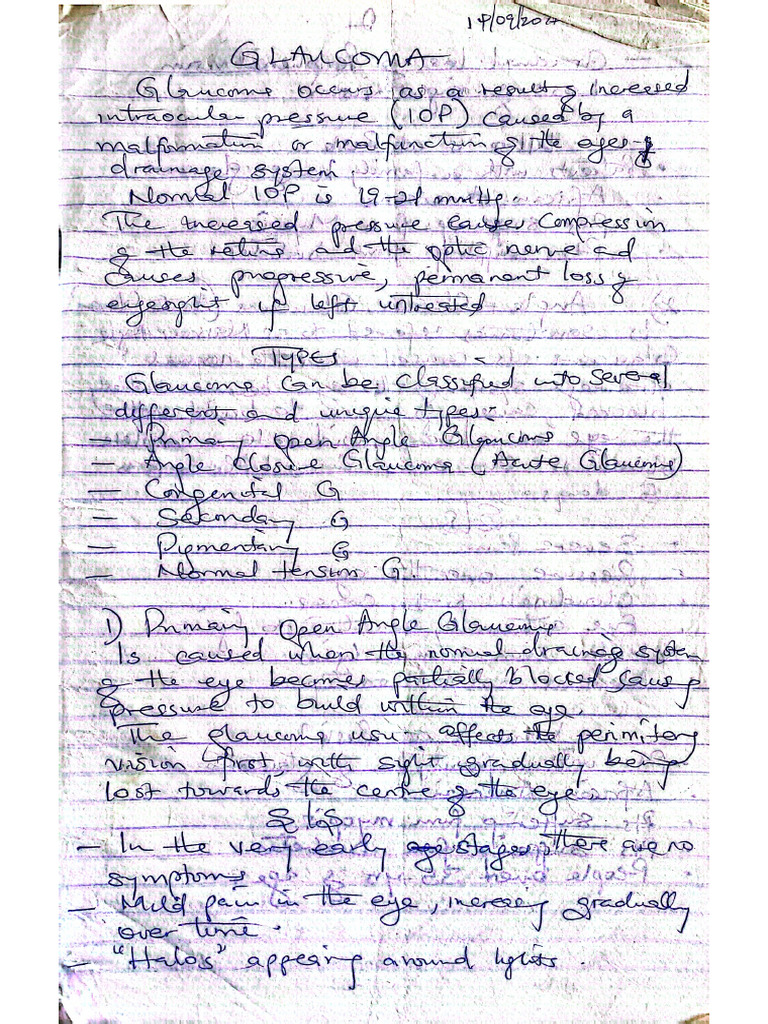 14/09/202
GLAUCOMA
Glaucoma occurs as a result of increased
intraocular pressure (IOP) caused by a
malformation or malfunction of the eyes
drainage system
Normal IOP is 19-21 mmHg.
The increased pressure causes compression
of the retina and the optic nerve and
causes progressive, permanent loss of
eyesight if left untreated
TYPES
Glaucoma can be classified into several
different and unique types:-
- Primary open Angle Glaucoma
- Angle closure Glaucoma (Acute Glaucoma)
- Congenital G
- Secondary G
- Pigmentary G
- Normal tension G.
1) Primary Open Angle Glaucoma
Is caused when the normal drainage system
of the eye becomes partially blocked causing
pressure to build within the eye.
The glaucoma usu affects the
vision first, with sight gradually being
lost towards the centre of the eye
S/S
- In the very early stages, there are no
symptoms
- Mild pain in the eye, increasing gradually
over time.
- "Halos" appearing around lights.